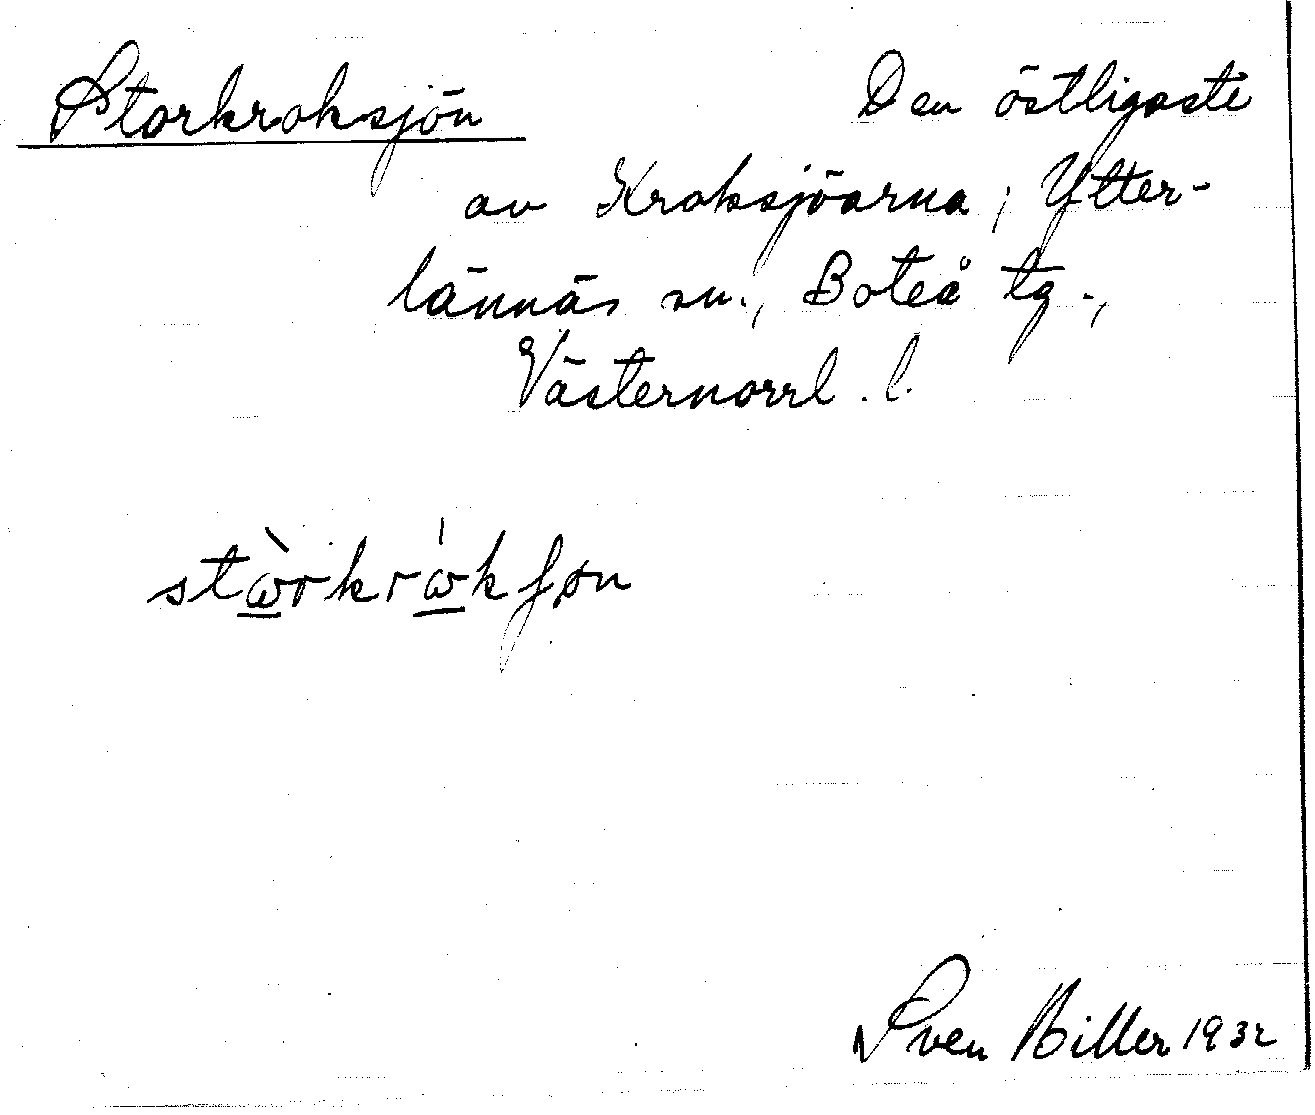 Storkroksjön Den östligaste
av Kroksjöarna, Ytter-
lännäs sn., Boteå tg.,
Västernorrl. l.
stὼ̲rkrώ̲kʃøn
Sven Biller 1932